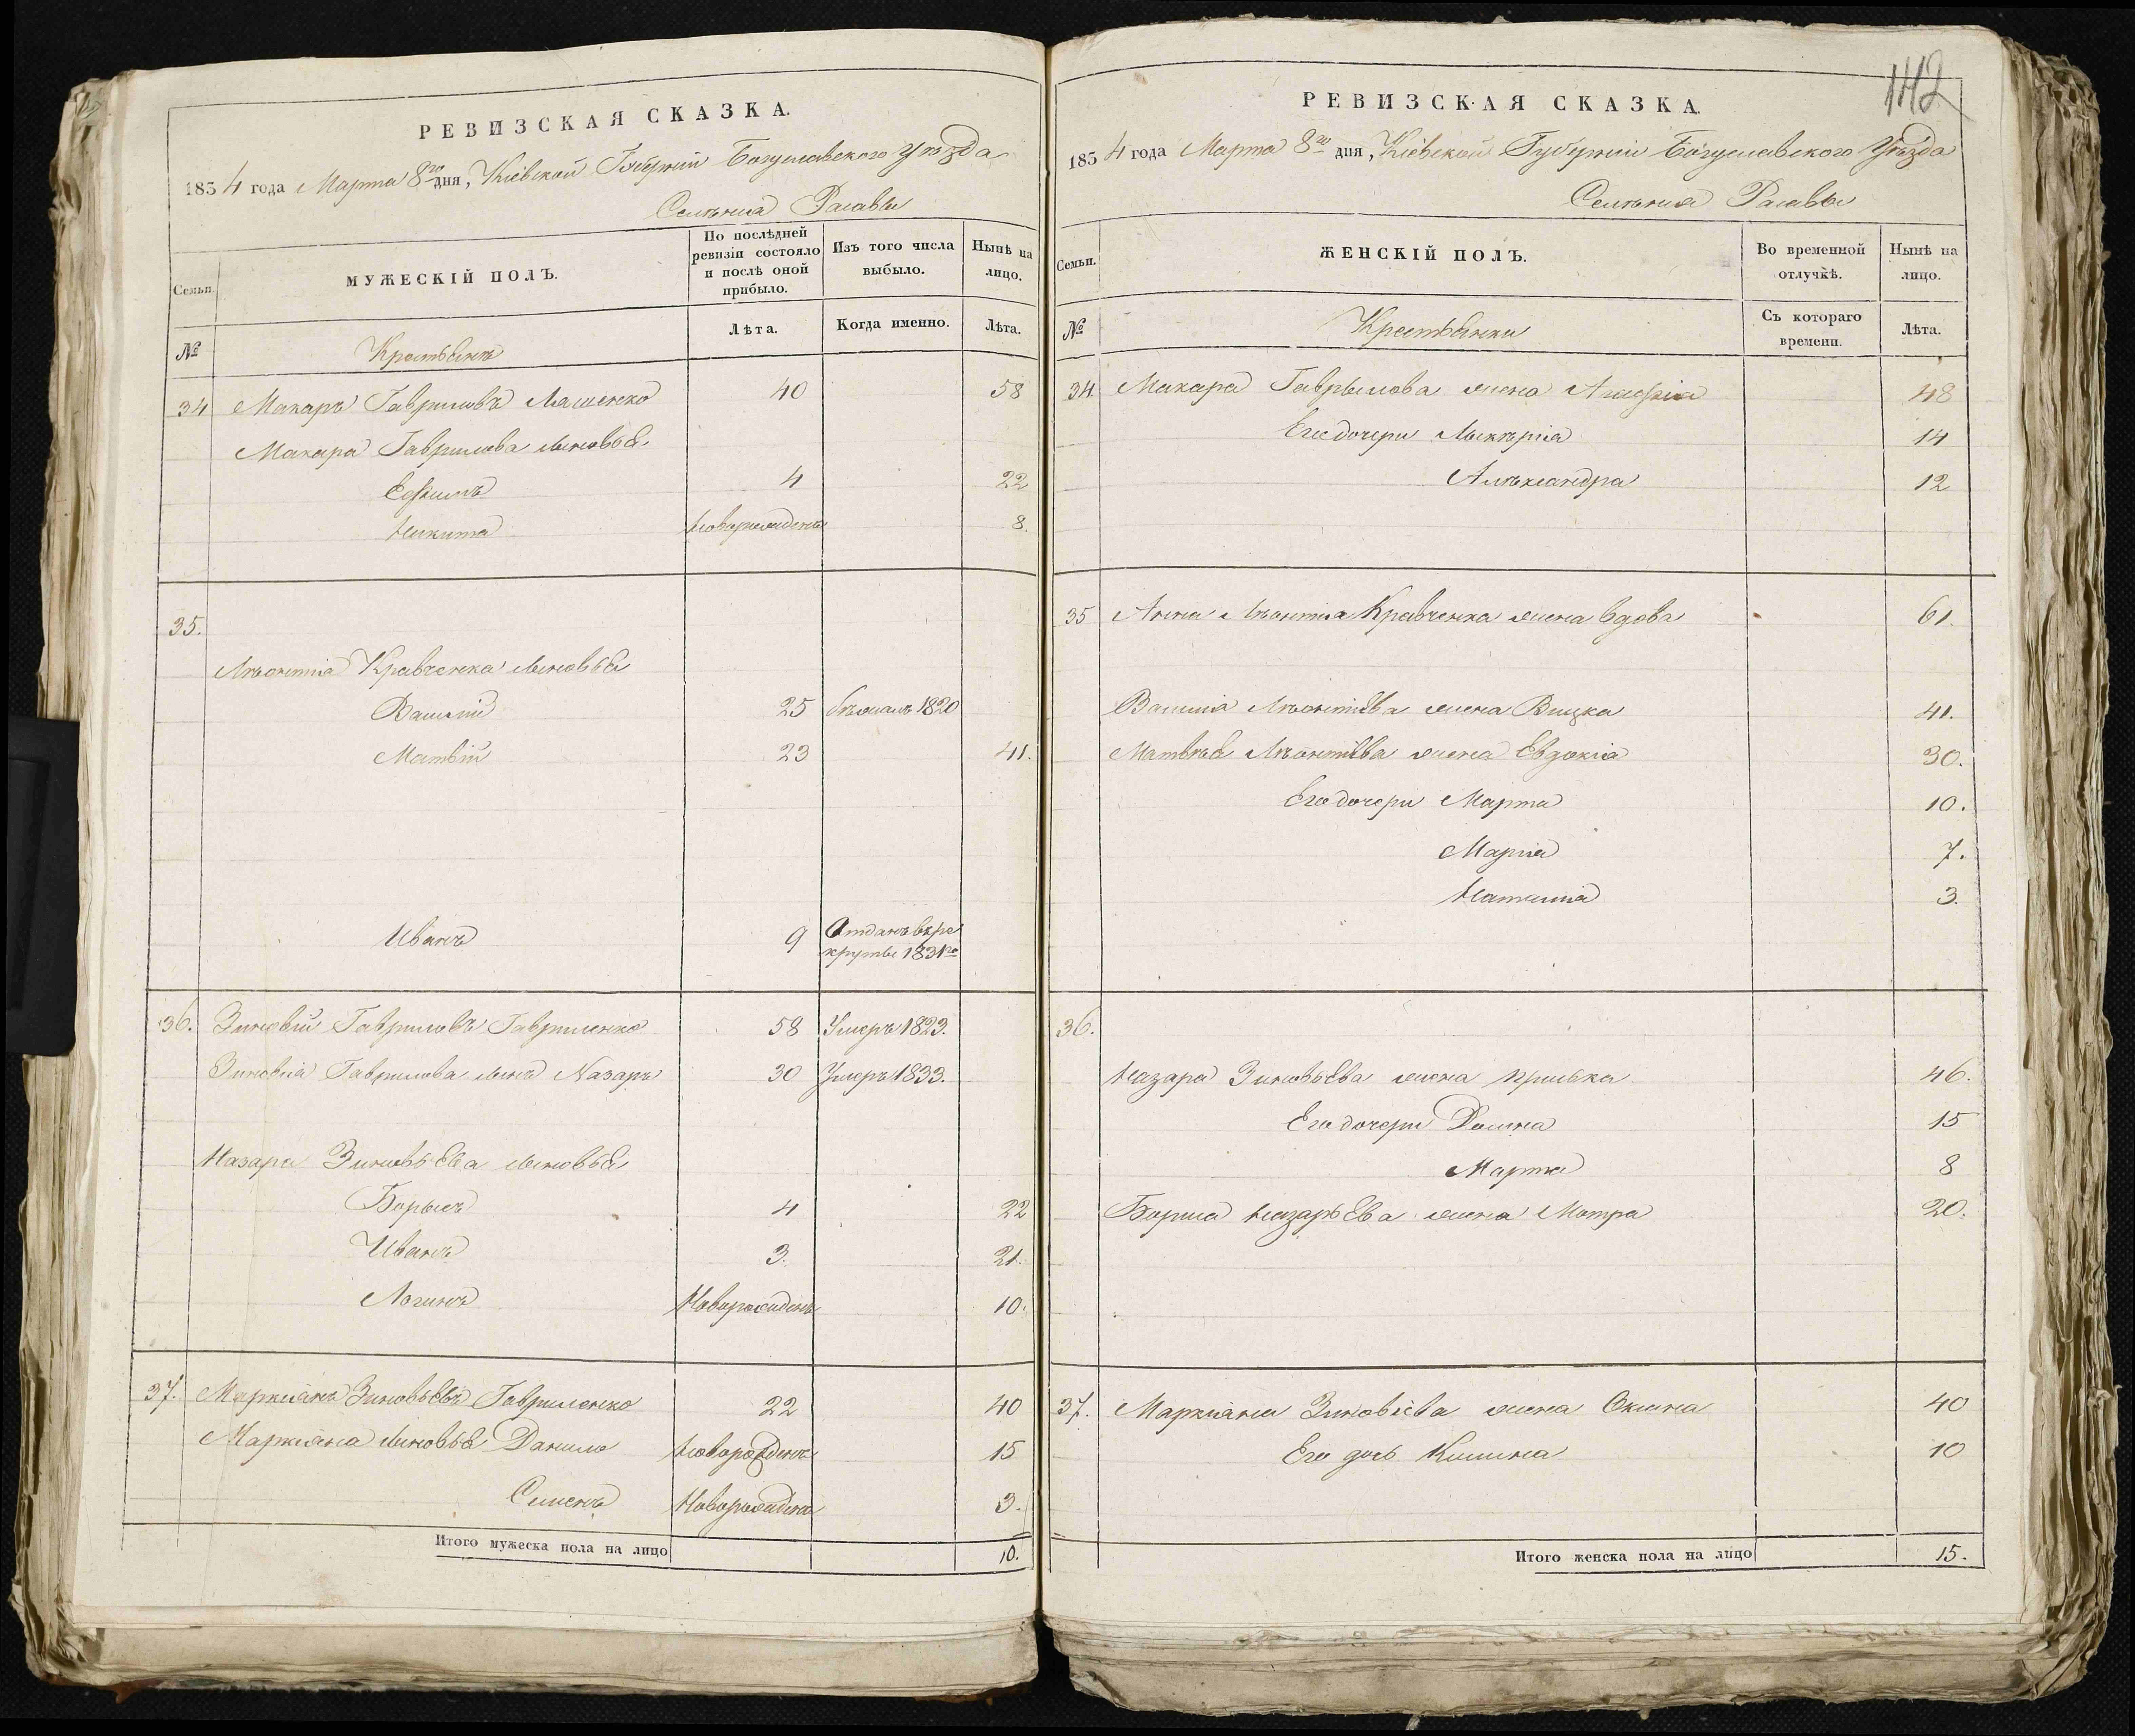 РЕВИЗСКАЯ СКАЗКА.
1834 года Марта 8го дня, Кіевской Губерніи Богуславского Уѣзда
Селѣнія Расавы
Семьи.
МУЖЕСКІЙ ПОЛЪ.
По послѣдней ревизіи состояло и послѣ оной прибыло.
Изъ того числа выбыло.
Нынѣ на лицо.
№
Крестьянѣ
Лѣта.
Когда именно.
Лѣта.
34 Макаръ Гавриловъ Лященко 40 58
Макара Гаврилова сыновья
Ефимъ 4 22
Никита новорожденъ 8.
35.
Лѣонтія Кравченка сыновья
Василій 25 бѣжалъ 1820
Матвій 23 41.
Иванъ 9 Отданъ въ ре
круты 1831го
36. Зиновій Гавриловъ Гавриленко 58 Умеръ 1823.
Зиновія Гаврилова сынъ Назаръ 30 Умеръ 1833.
Назара Зиновьева сыновья
Борысъ 4 22
Иванъ 3. 21.
Логинъ Новорожденъ 10.
37. Маркіянъ Зиновьевъ Гавриленко 22 40
Маркіяна сыновья Данило новорожденъ 15
Семенъ Новорожденъ 3.
Итого мужеска пола на лицо 10.
142
РЕВИЗСКАЯ СКАЗКА.
1834 года Марта 8го дня, Кіевской Губерніи Богуславского Уѣзда
Селѣнія Расавы
Семьи.
ЖЕНСКІЙ ПОЛЪ.
Во временной отлучкѣ.
Нынѣ на лицо.
№
Крестьянки
Съ котораго времени.
Лѣта.
34. Макара Гаврылова жена 48
Его дочери Лыкѣрія 14
Алѣксандра 12
35 Анна Лѣонтія Кравченка жена вдова 61.
Василія Лѣонтіева жена 41.
Матвѣя Лѣонтіева жена Евдокія 30.
Его дочери Марта 10.
Марія 7.
Наталія 3.
36.
Назара Зиновьева жена 46.
Его дочери 15
Марта 8
Бориса Назарьева жена Мотра 20.
37. Маркіяна Зиновіева жена Оксана 40
Его дочь Килина 10
Итого женска пола на лицо 15.